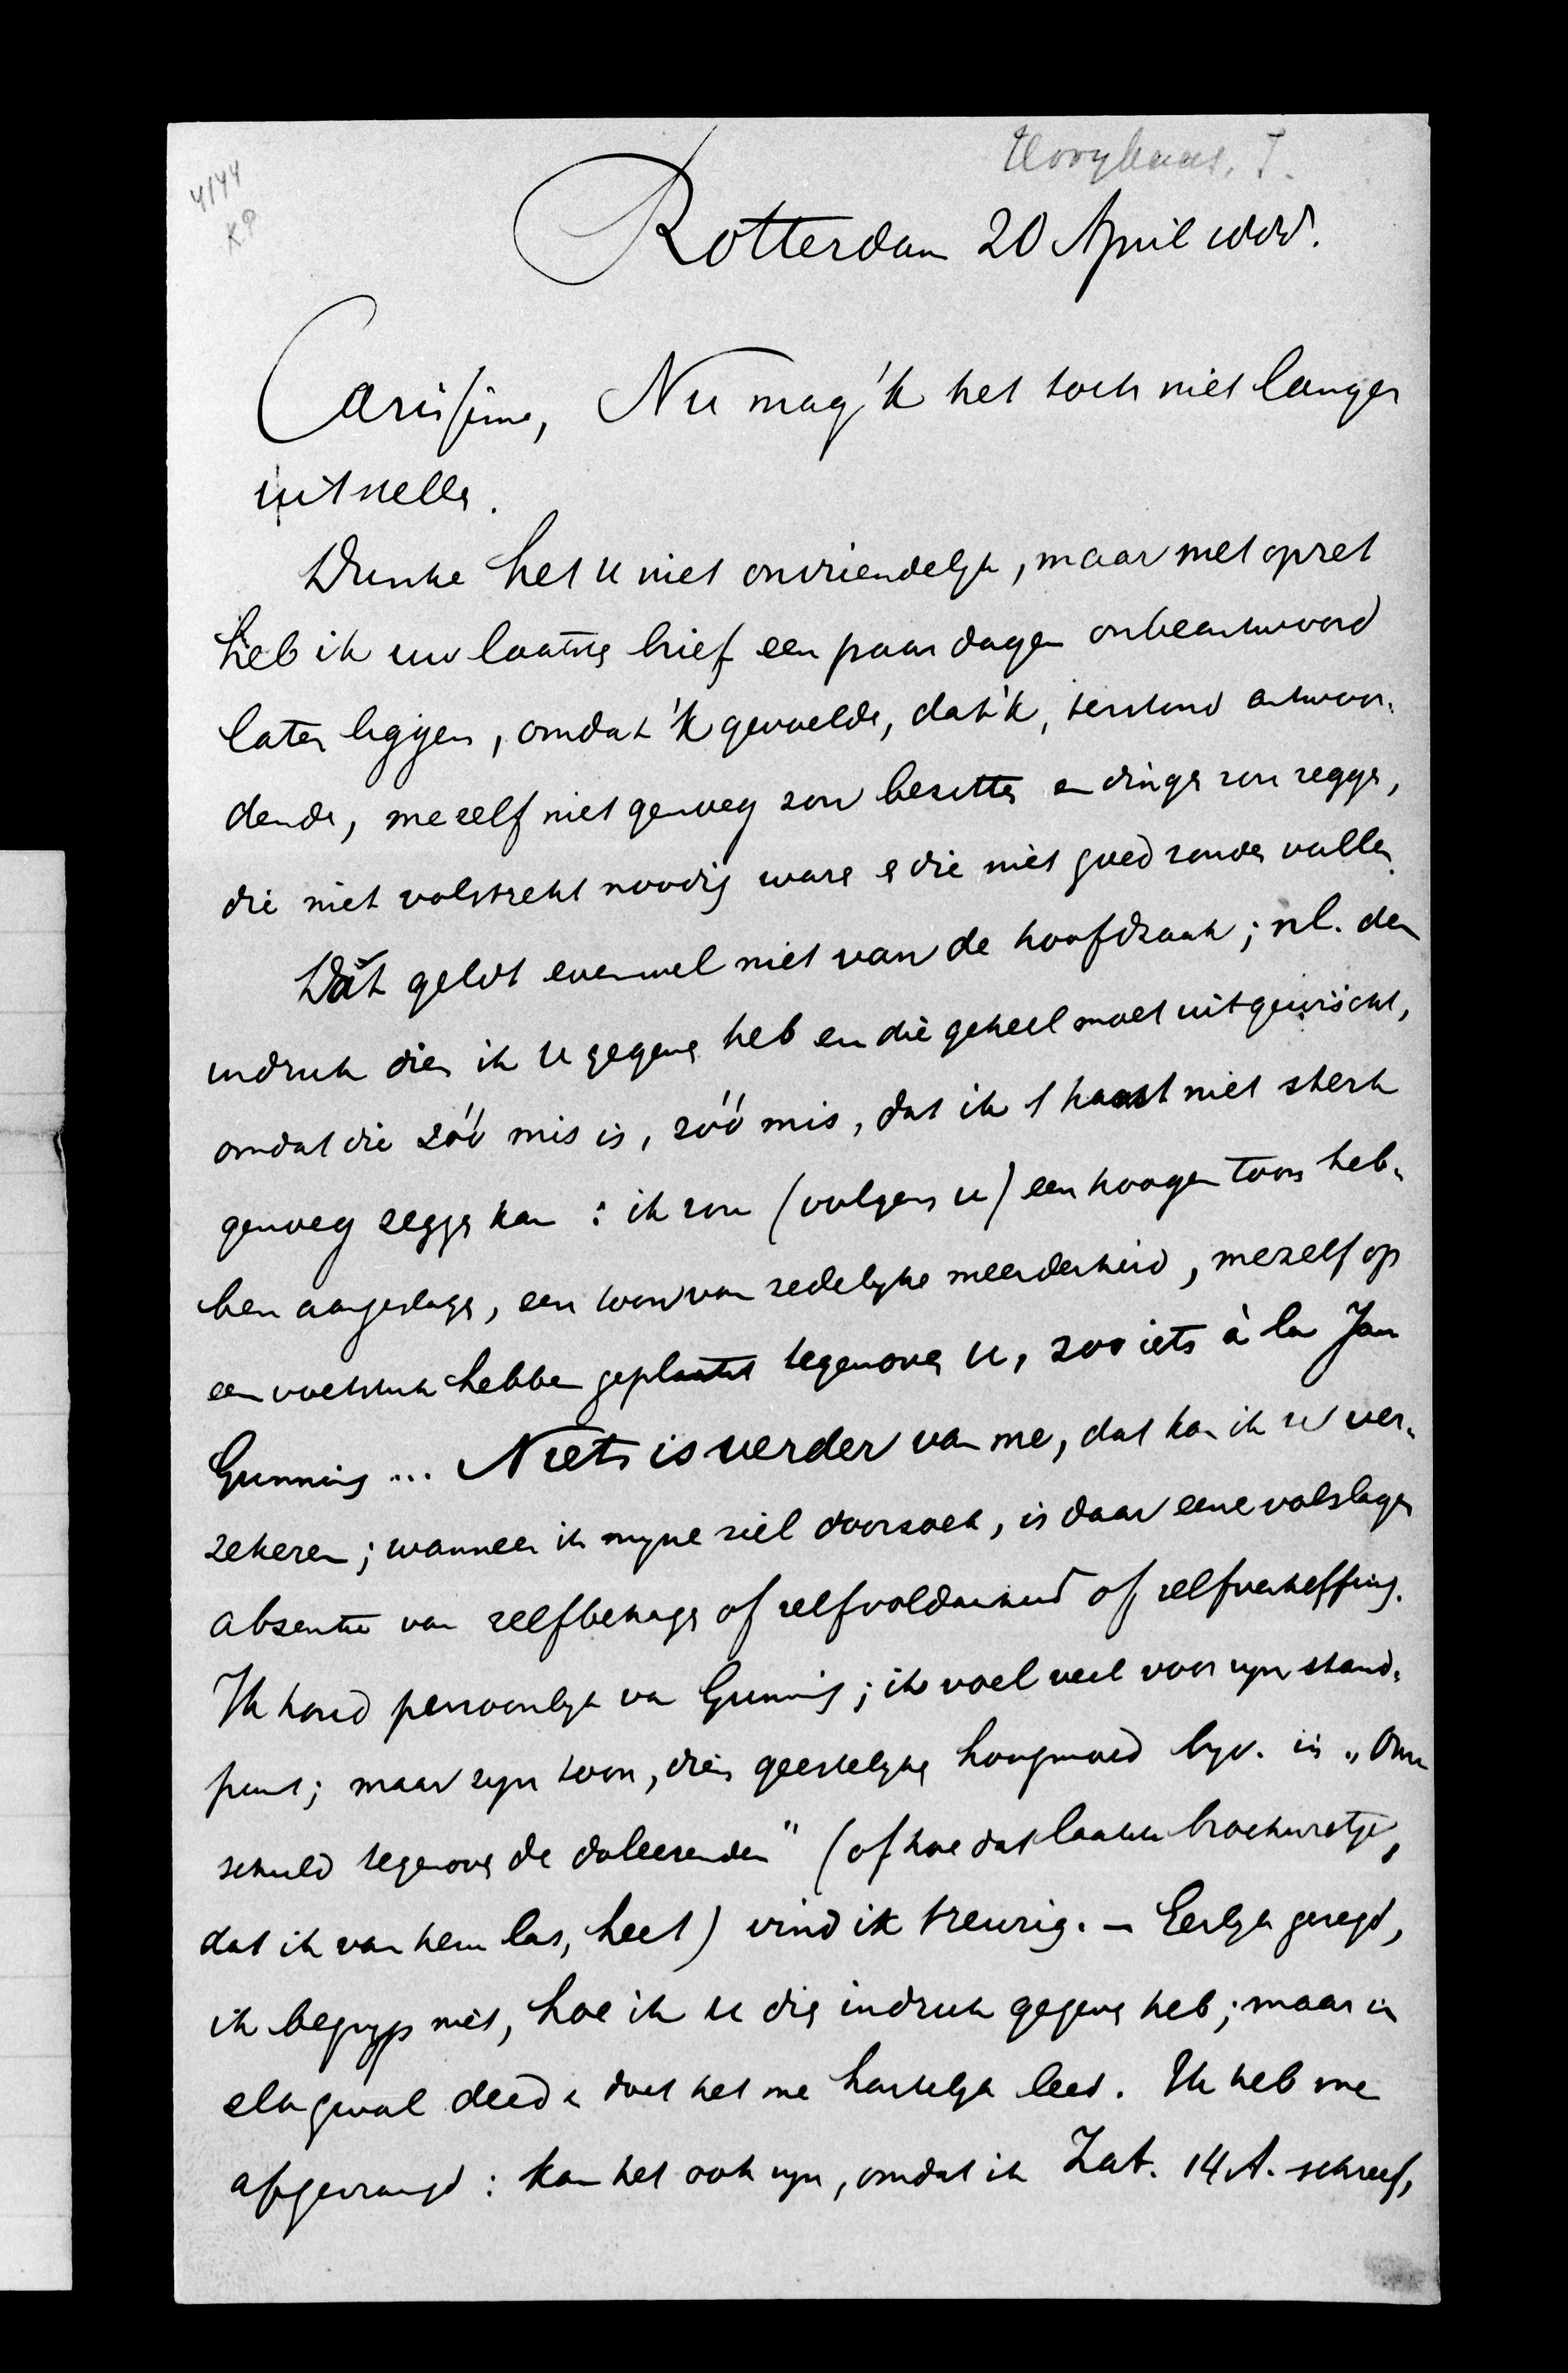 4/44
K.P
Hooykaas, I.
Rotterdam 20 April 1888.
Carissime, Nu mag 'k het toch niet langer
uitstellen.
Dunke het u niet onvriendelijk, maar met opzet
heb ik uw laatste brief een paar dagen onbeantwoord
laten liggen, omdat 'k gevoelde, dat 'k, terstond antwoor-
dende, mezelf niet genoeg zou bezitten en dingen zou zeggen,
die niet volstrekt noodig waren en die niet goed zouden vallen.
Dàt geldt evenwel niet van de hoofdzaak; nl. den
indruk dien ik u gegeven heb en die geheel moet uitgewischt,
omdat die zóó mis is, zóó mis, dat ik 't haast niet sterk
genoeg zeggen kan: ik zou (volgens u) een hoogen toon heb-
ben aangeslagen, een toon van zedelijke meerderheid, mezelf op
een voetstuk hebben geplaatst tegenover u, zoo iets à la Jan
Gunning ... Niets is verder van me, dat kan ik u ver-
zekeren; wanneer ik mijne ziel doorzoek, is daar eene volslagen
absentie van zelfbehagen of zelfvoldaanheid of zelfverheffing.
Ik houd persoonlijk van Gunning; ik voel veel voor zijn stand-
punt; maar zijn toon, dien geestelijken hoogmoed bijv. in „Onze
schuld tegenover de doleerenden" (of hoe dat laatste brochuretje,
dat ik van hem las, heet) vind ik treurig. — Eerlijk gezegd,
ik begrijp niet, hoe ik u dien indruk gegeven heb; maar in
elk geval deed en doet het me hartelijk leed. Ik heb me
afgevraagd: kan het ook zijn, omdat ik Zat. 14 A. schreef,